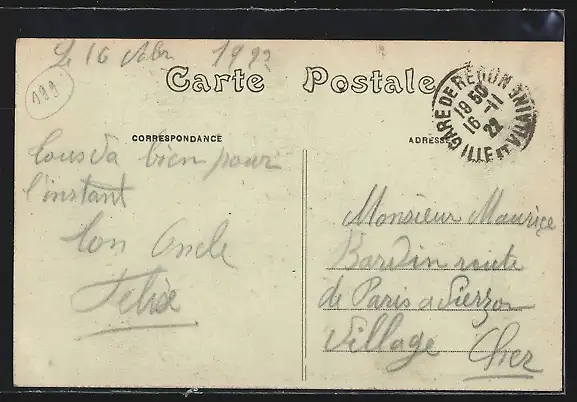 Le 16 Nbr 1922
199
Carte Postale
CORRESPONDANCE
ADRESSE
GARE DE REDON
19 50
16 - 11
22
ILLE ET VILAINE
tous va bien pour
l'instant
ton Oncle
Felix
Monsieur Maurice
Bardin route
de Paris a Vierzon
Village Cher